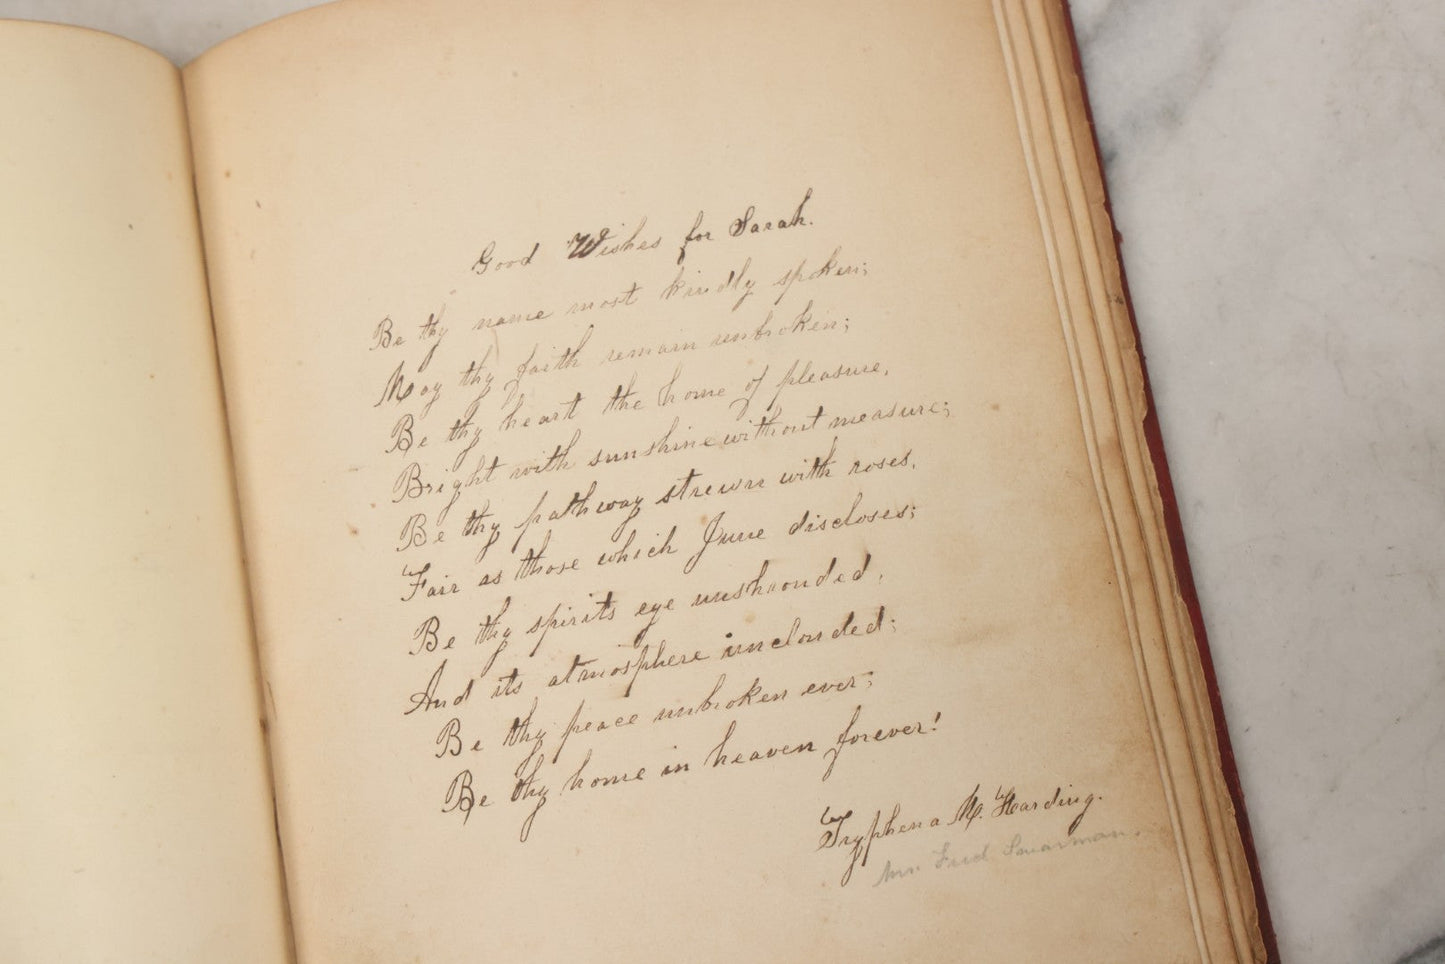 Good Wishes for Sarah.
Be thy name most kindly spoken;
May thy faith remain unbroken;
Be thy heart the home of pleasure,
Bright with sunshine without measure;
Be thy pathway strewn with roses,
Fair as those which June discloses;
Be thy spirits eye unshrouded,
And its atmosphere unclouded;
Be thy peace unbroken ever;
Be thy home in heaven forever!
Tryphena M. Harding.
Mrs. Fred